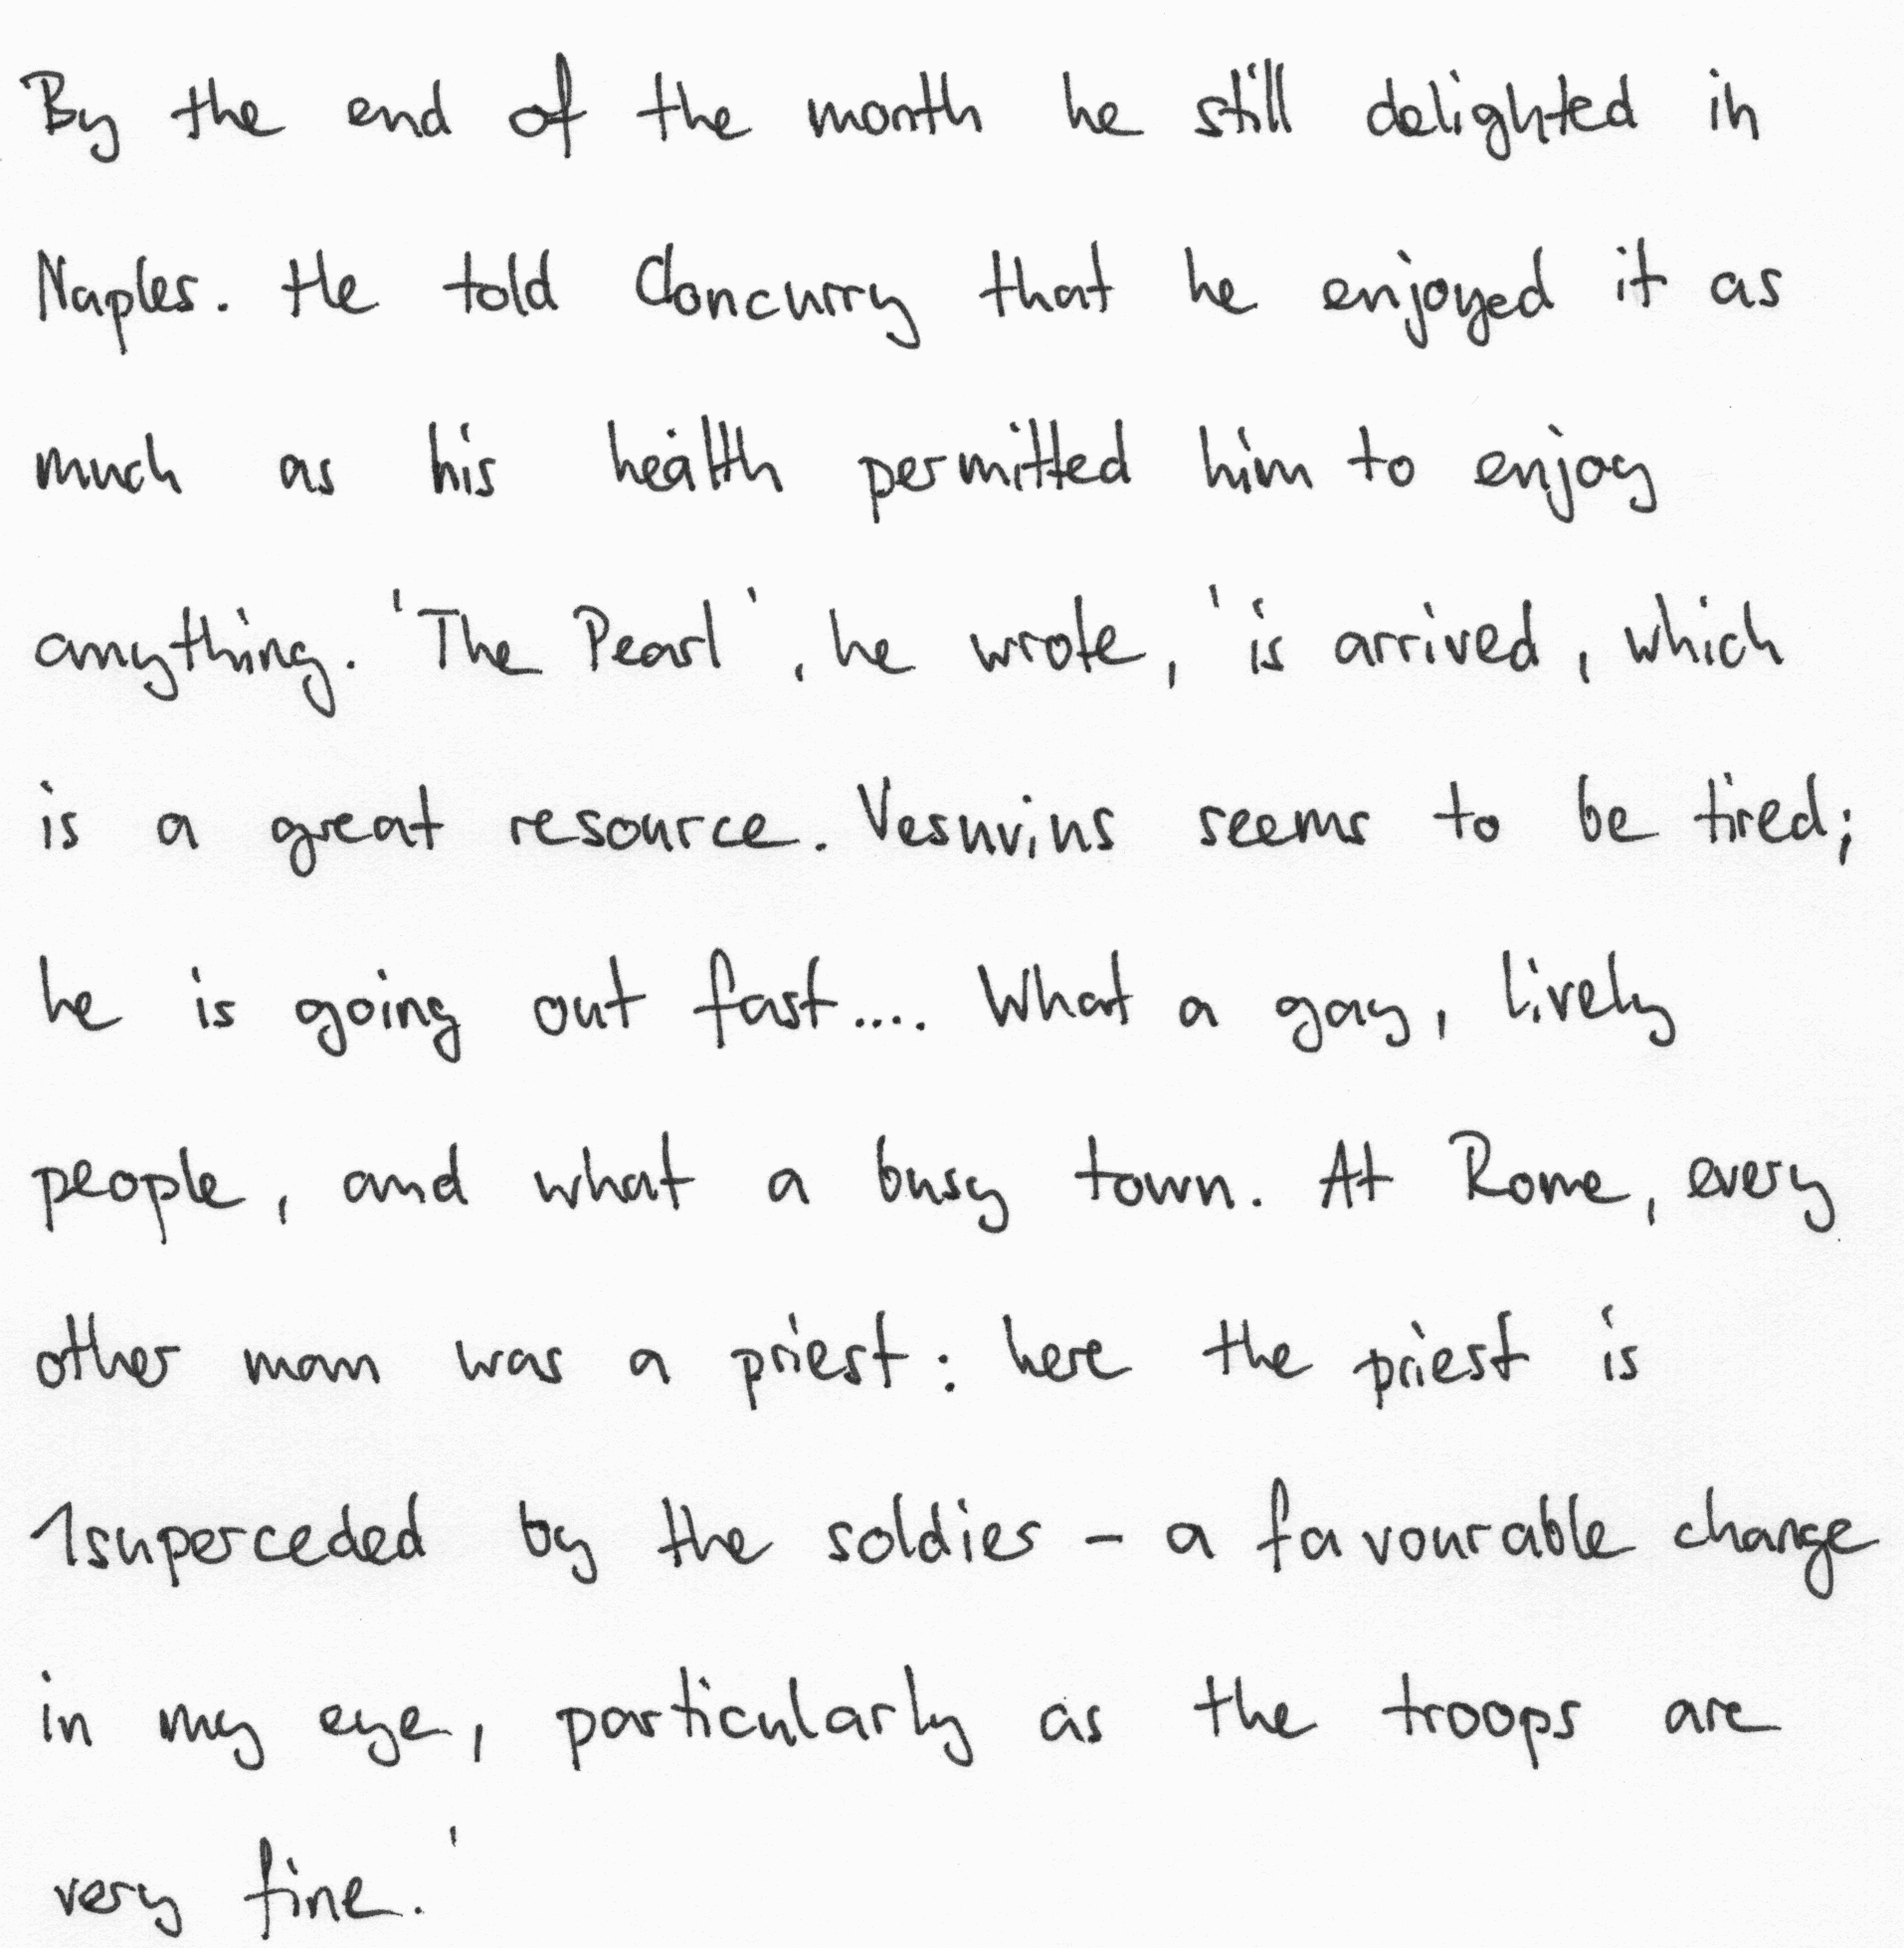 By the end of the month he still delighted in
Naples. He told Cloncurry that he enjoyed it as
much as his health permitted him to enjoy
anything. 'The Pearl', he wrote, 'is arrived, which
is a great resource. Vesuvius seems to be tired;
he is going out fast.... What a gay, lively
people, and what a busy town. At Rome, every
other man was a priest: here the priest is
1superceded by the soldier - a favourable change
in my eye, particularly as the troops are
very fine.'